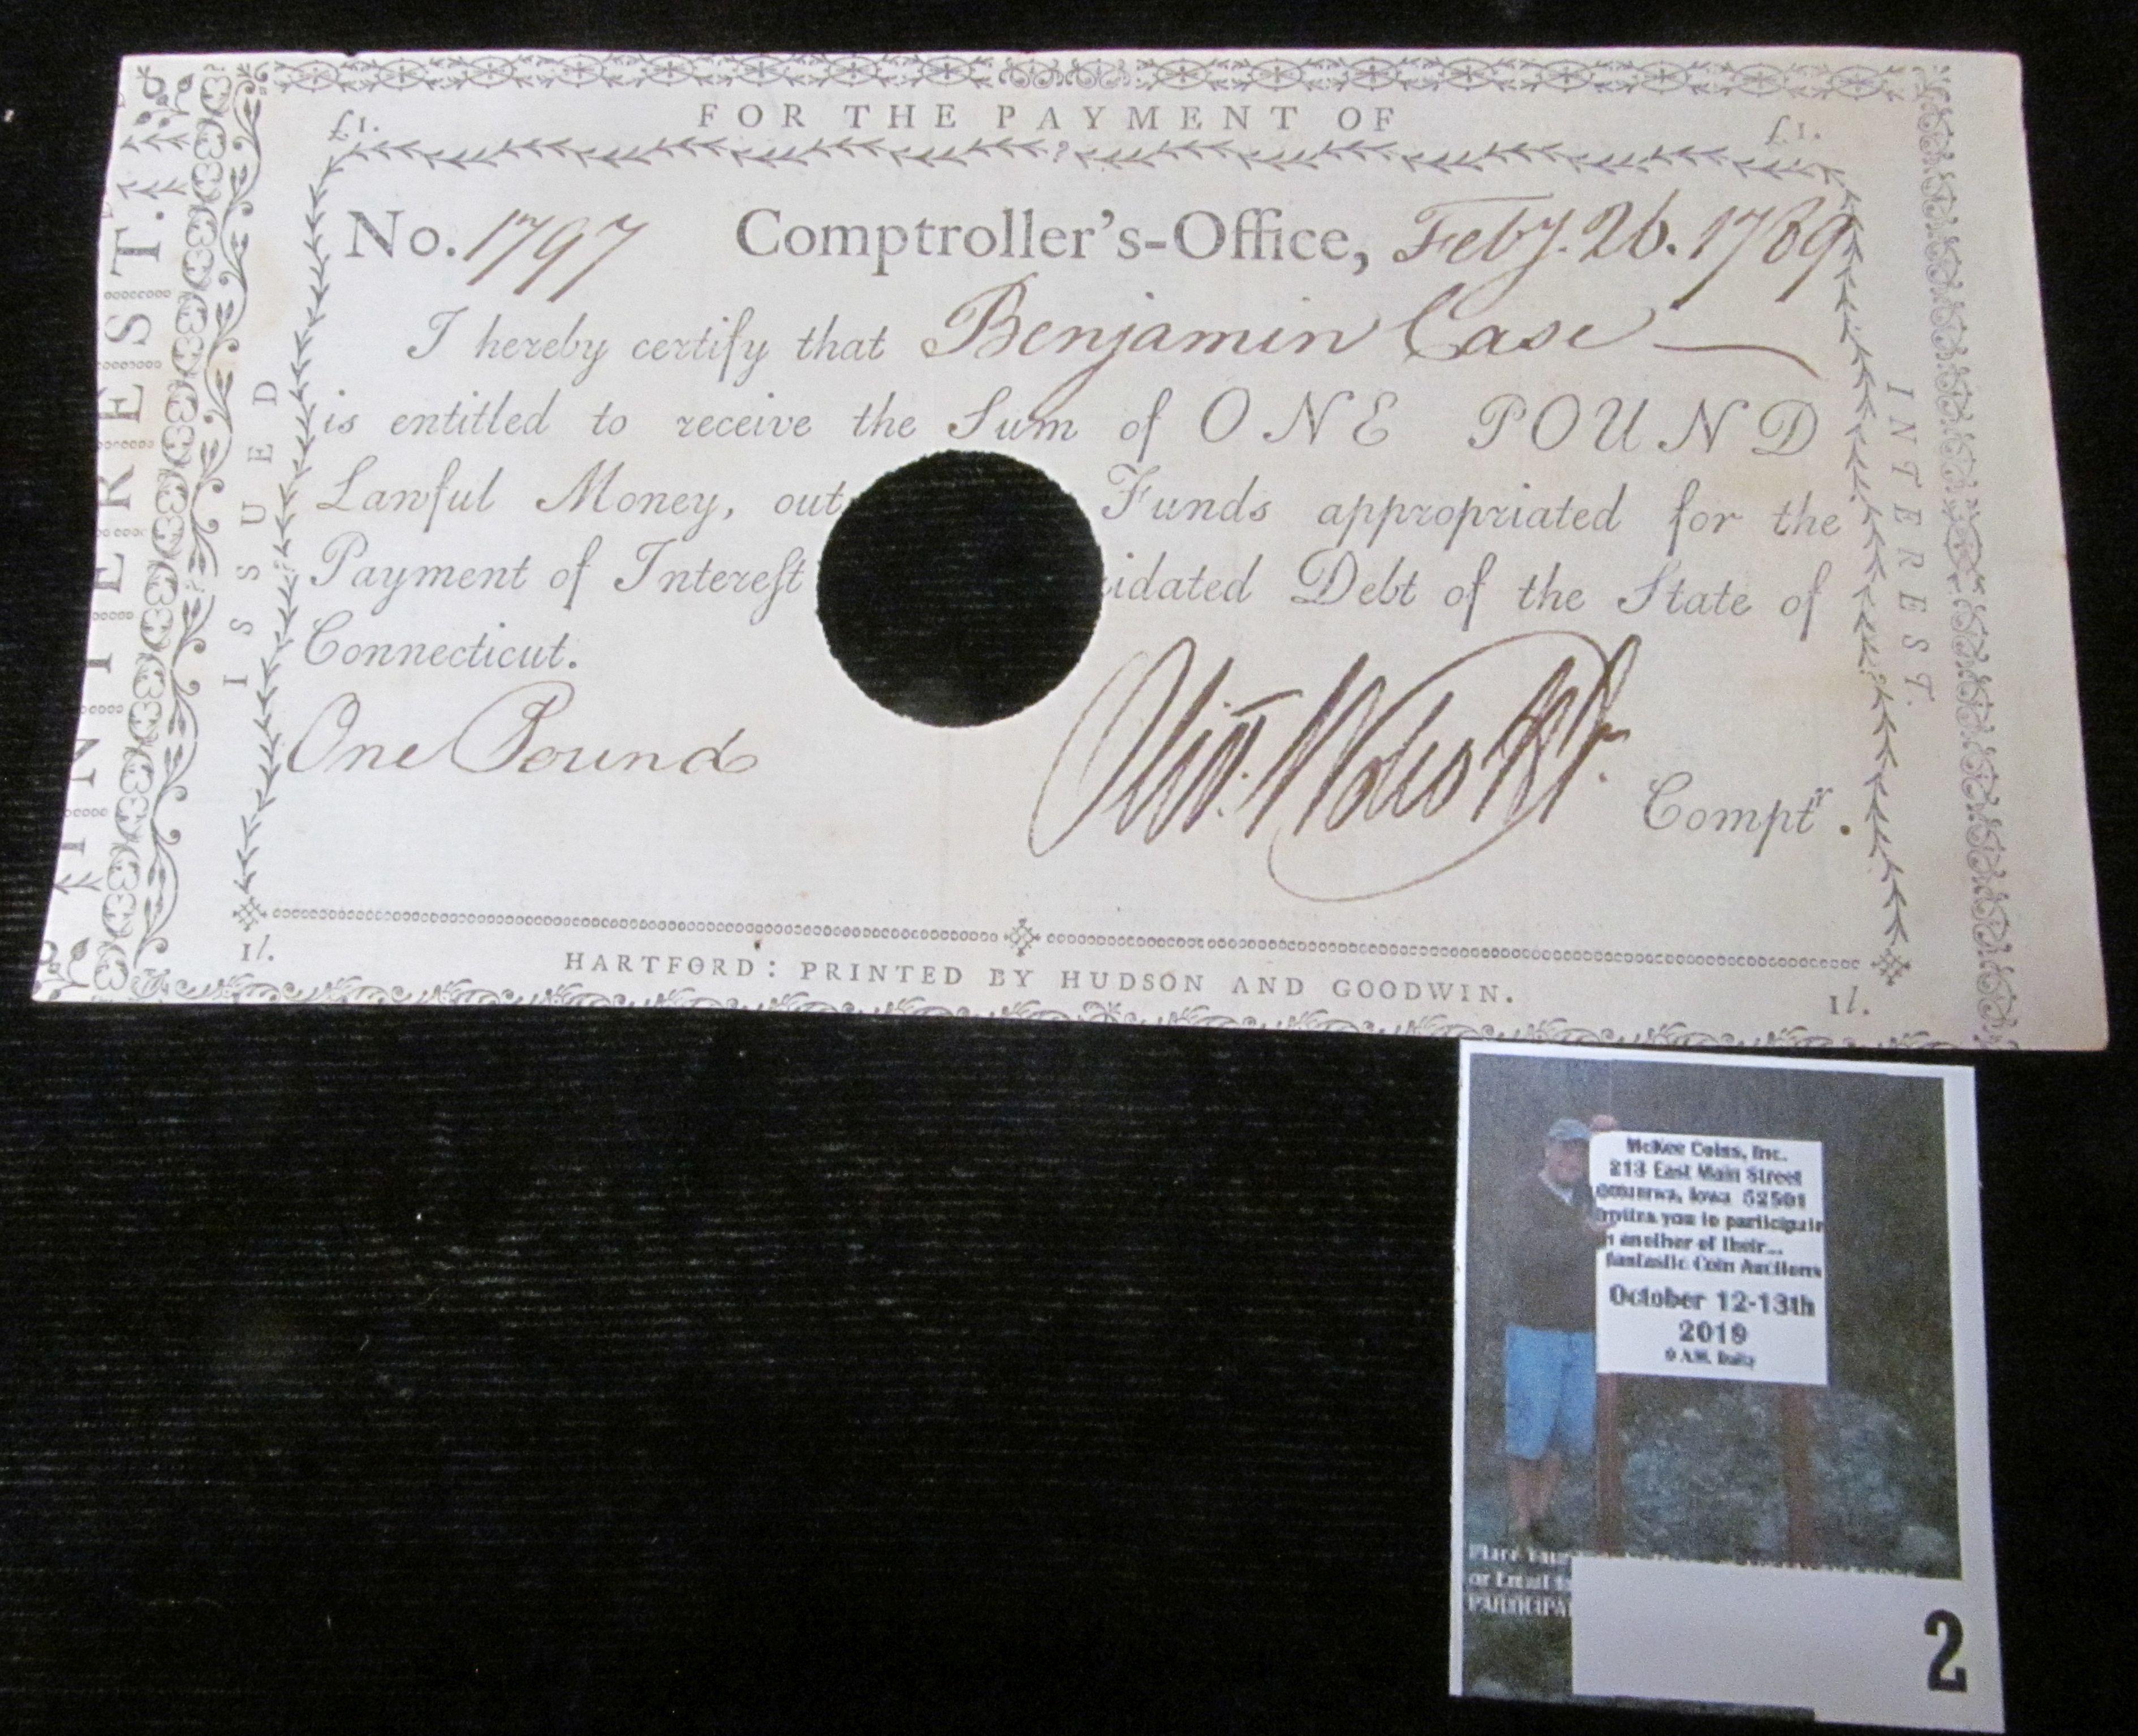 FOR THE PAYMENT OF
£1. £1.
No. 1797 Comptroller's-Office, Feby. 26. 1789
I hereby certify that Benjamin Case
is entitled to receive the Sum of ONE POUND
Lawful Money, out Funds appropriated for the
Payment of Interest idated Debt of the State of
Connecticut.
One Pound
Compt^r.
1l. 1l.
HARTFORD: PRINTED BY HUDSON AND GOODWIN.
INTEREST.
ISSUED
INTEREST.
McKee Coins, Inc.
213 East Main Street
Iowa 52501
invites you to participate
in another of their...
fantastic Coin Auctions
October 12-13th
2019
9 A.M. Daily
or Email
2